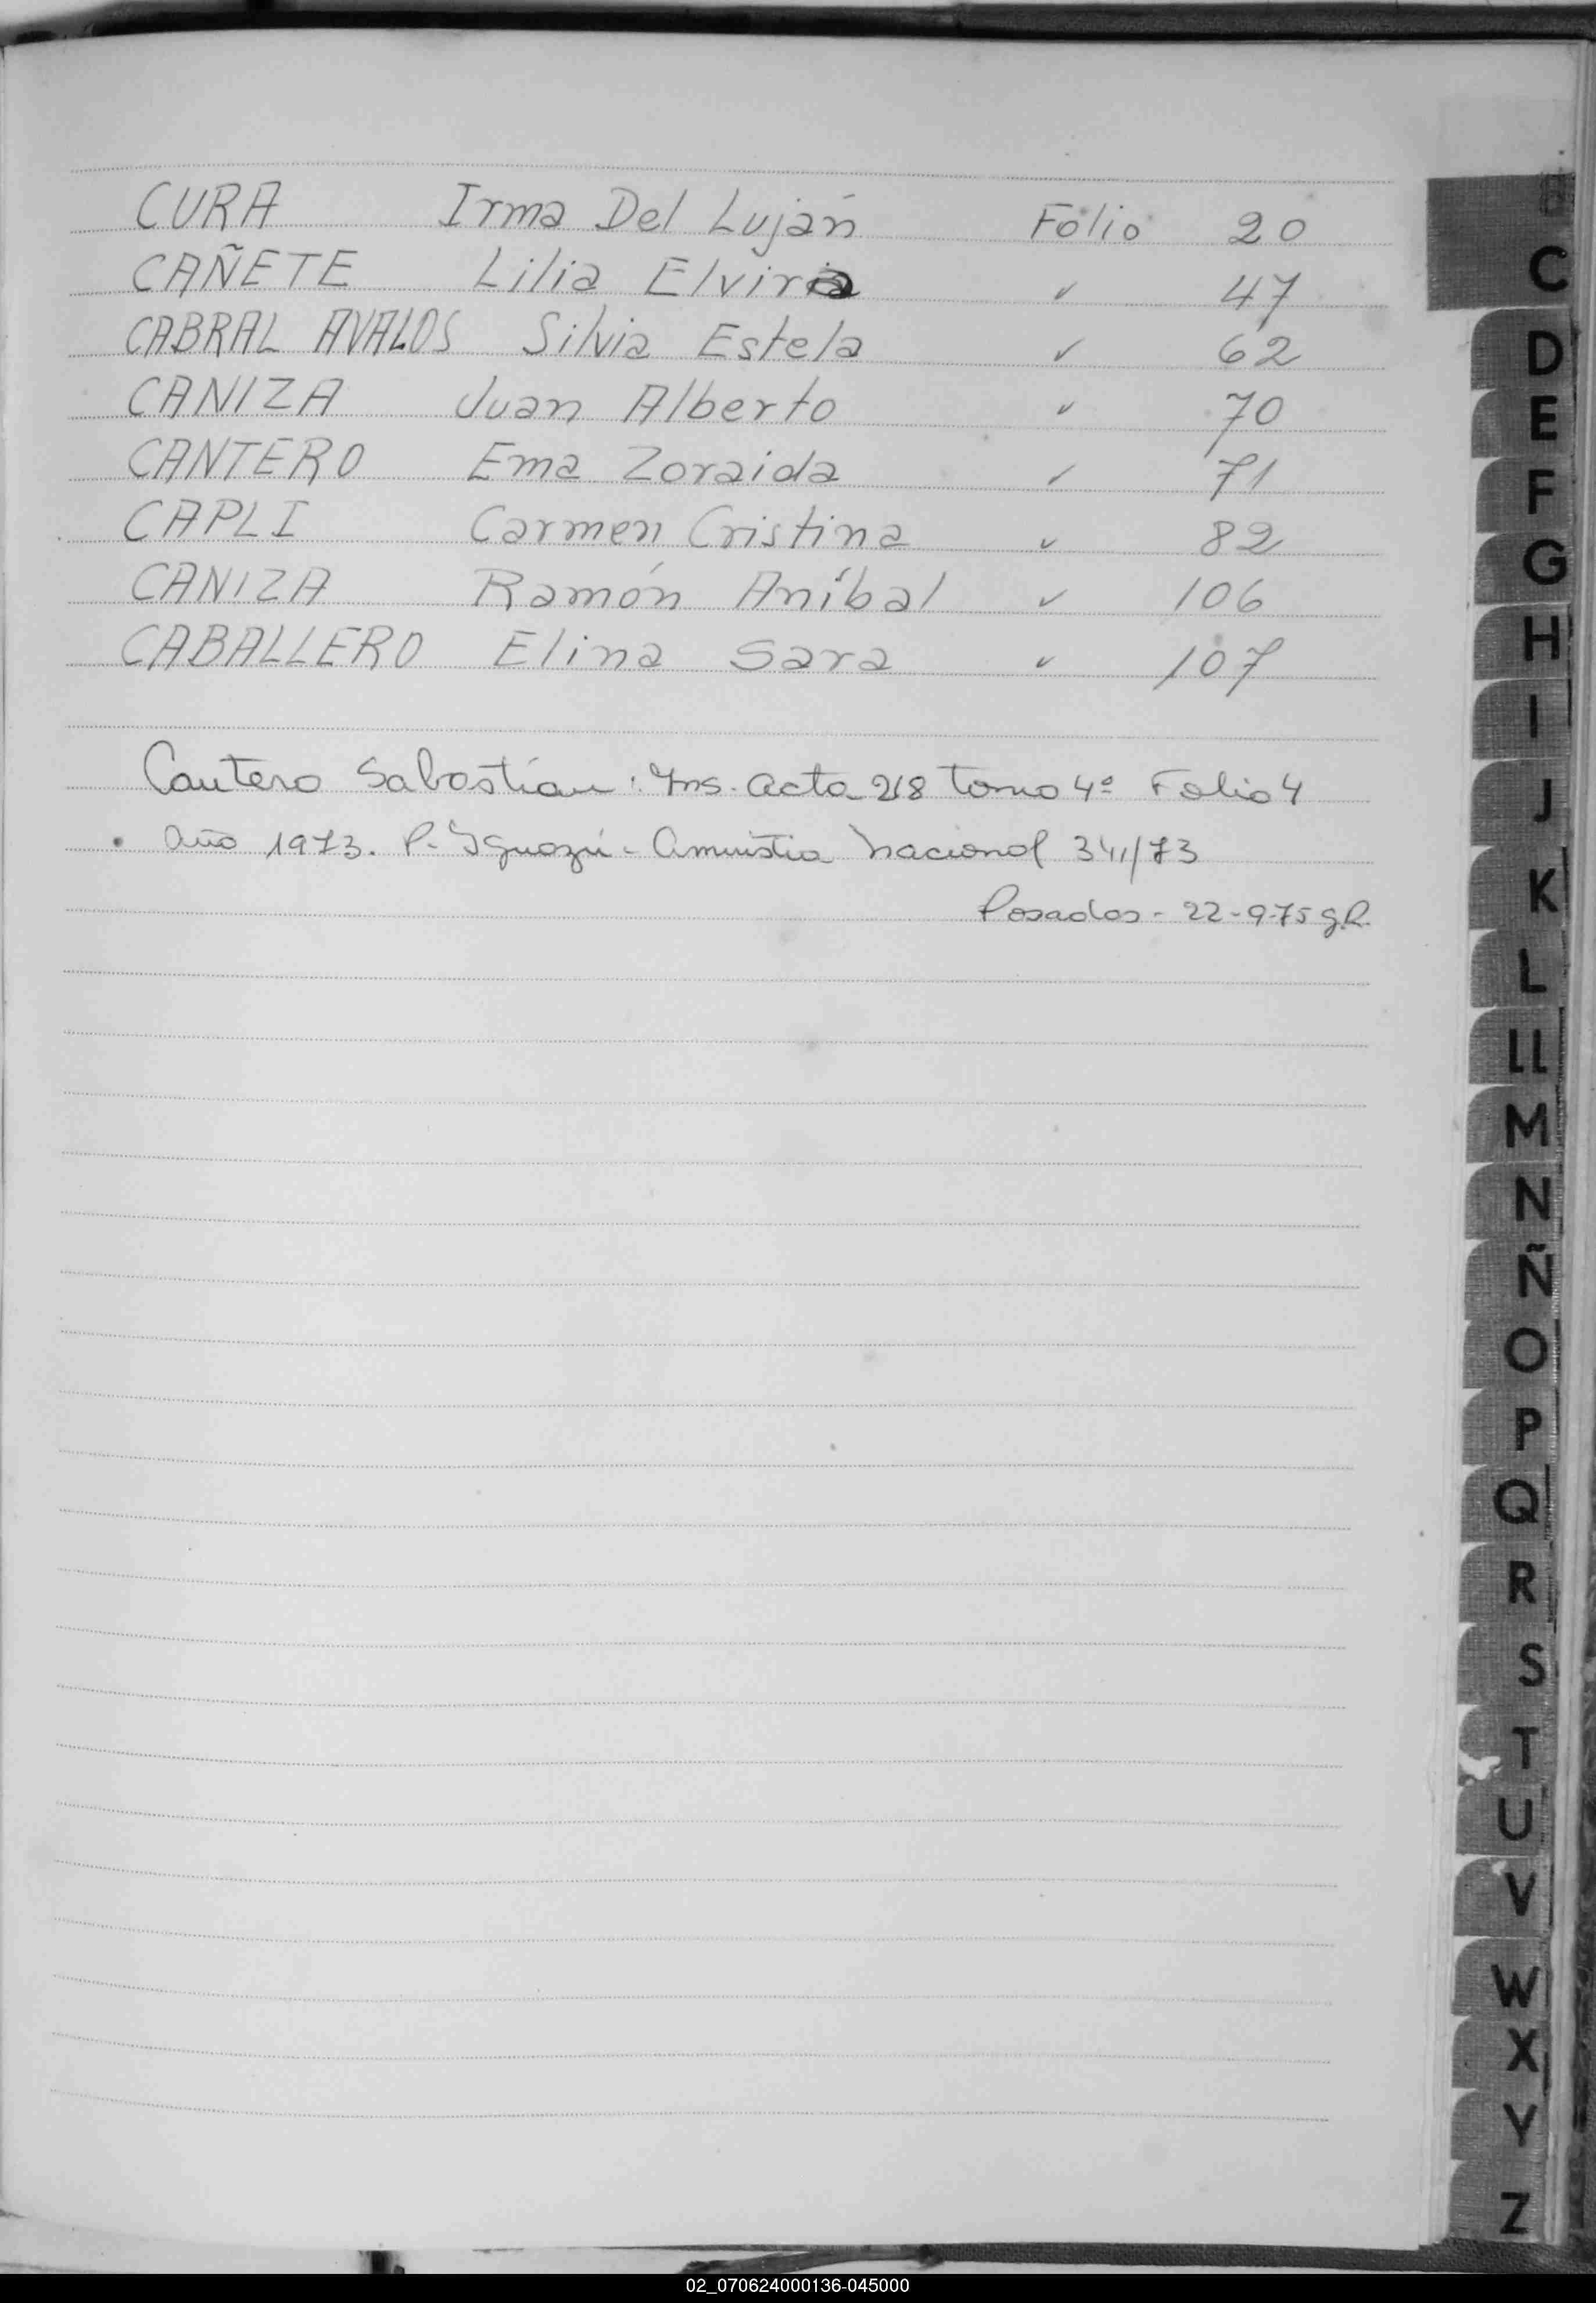 CURA Irma Del Luján Folio 20
CAÑETE Lilia Elvira ✓ 47
CABRAL AVALOS Silvia Estela ✓ 62
CANIZA Juan Alberto ✓ 70
CANTERO Ema Zoraida ✓ 71
CAPLI Carmen Cristina ✓ 82
CANIZA Ramón Aníbal ✓ 106
CABALLERO Elina Sara ✓ 107
Cantero Sabastián: Ins. acta 218 Tomo 4º Folio 4
Año 1973. P. Iguazú - Amnistia Nacional 341/73
Posadas - 22-9-75 g.R.
B
C
D
E
F
G
H
I
J
K
L
LL
M
N
Ñ
O
P
Q
R
S
T
U
V
W
X
Y
Z
02_070624000136-045000